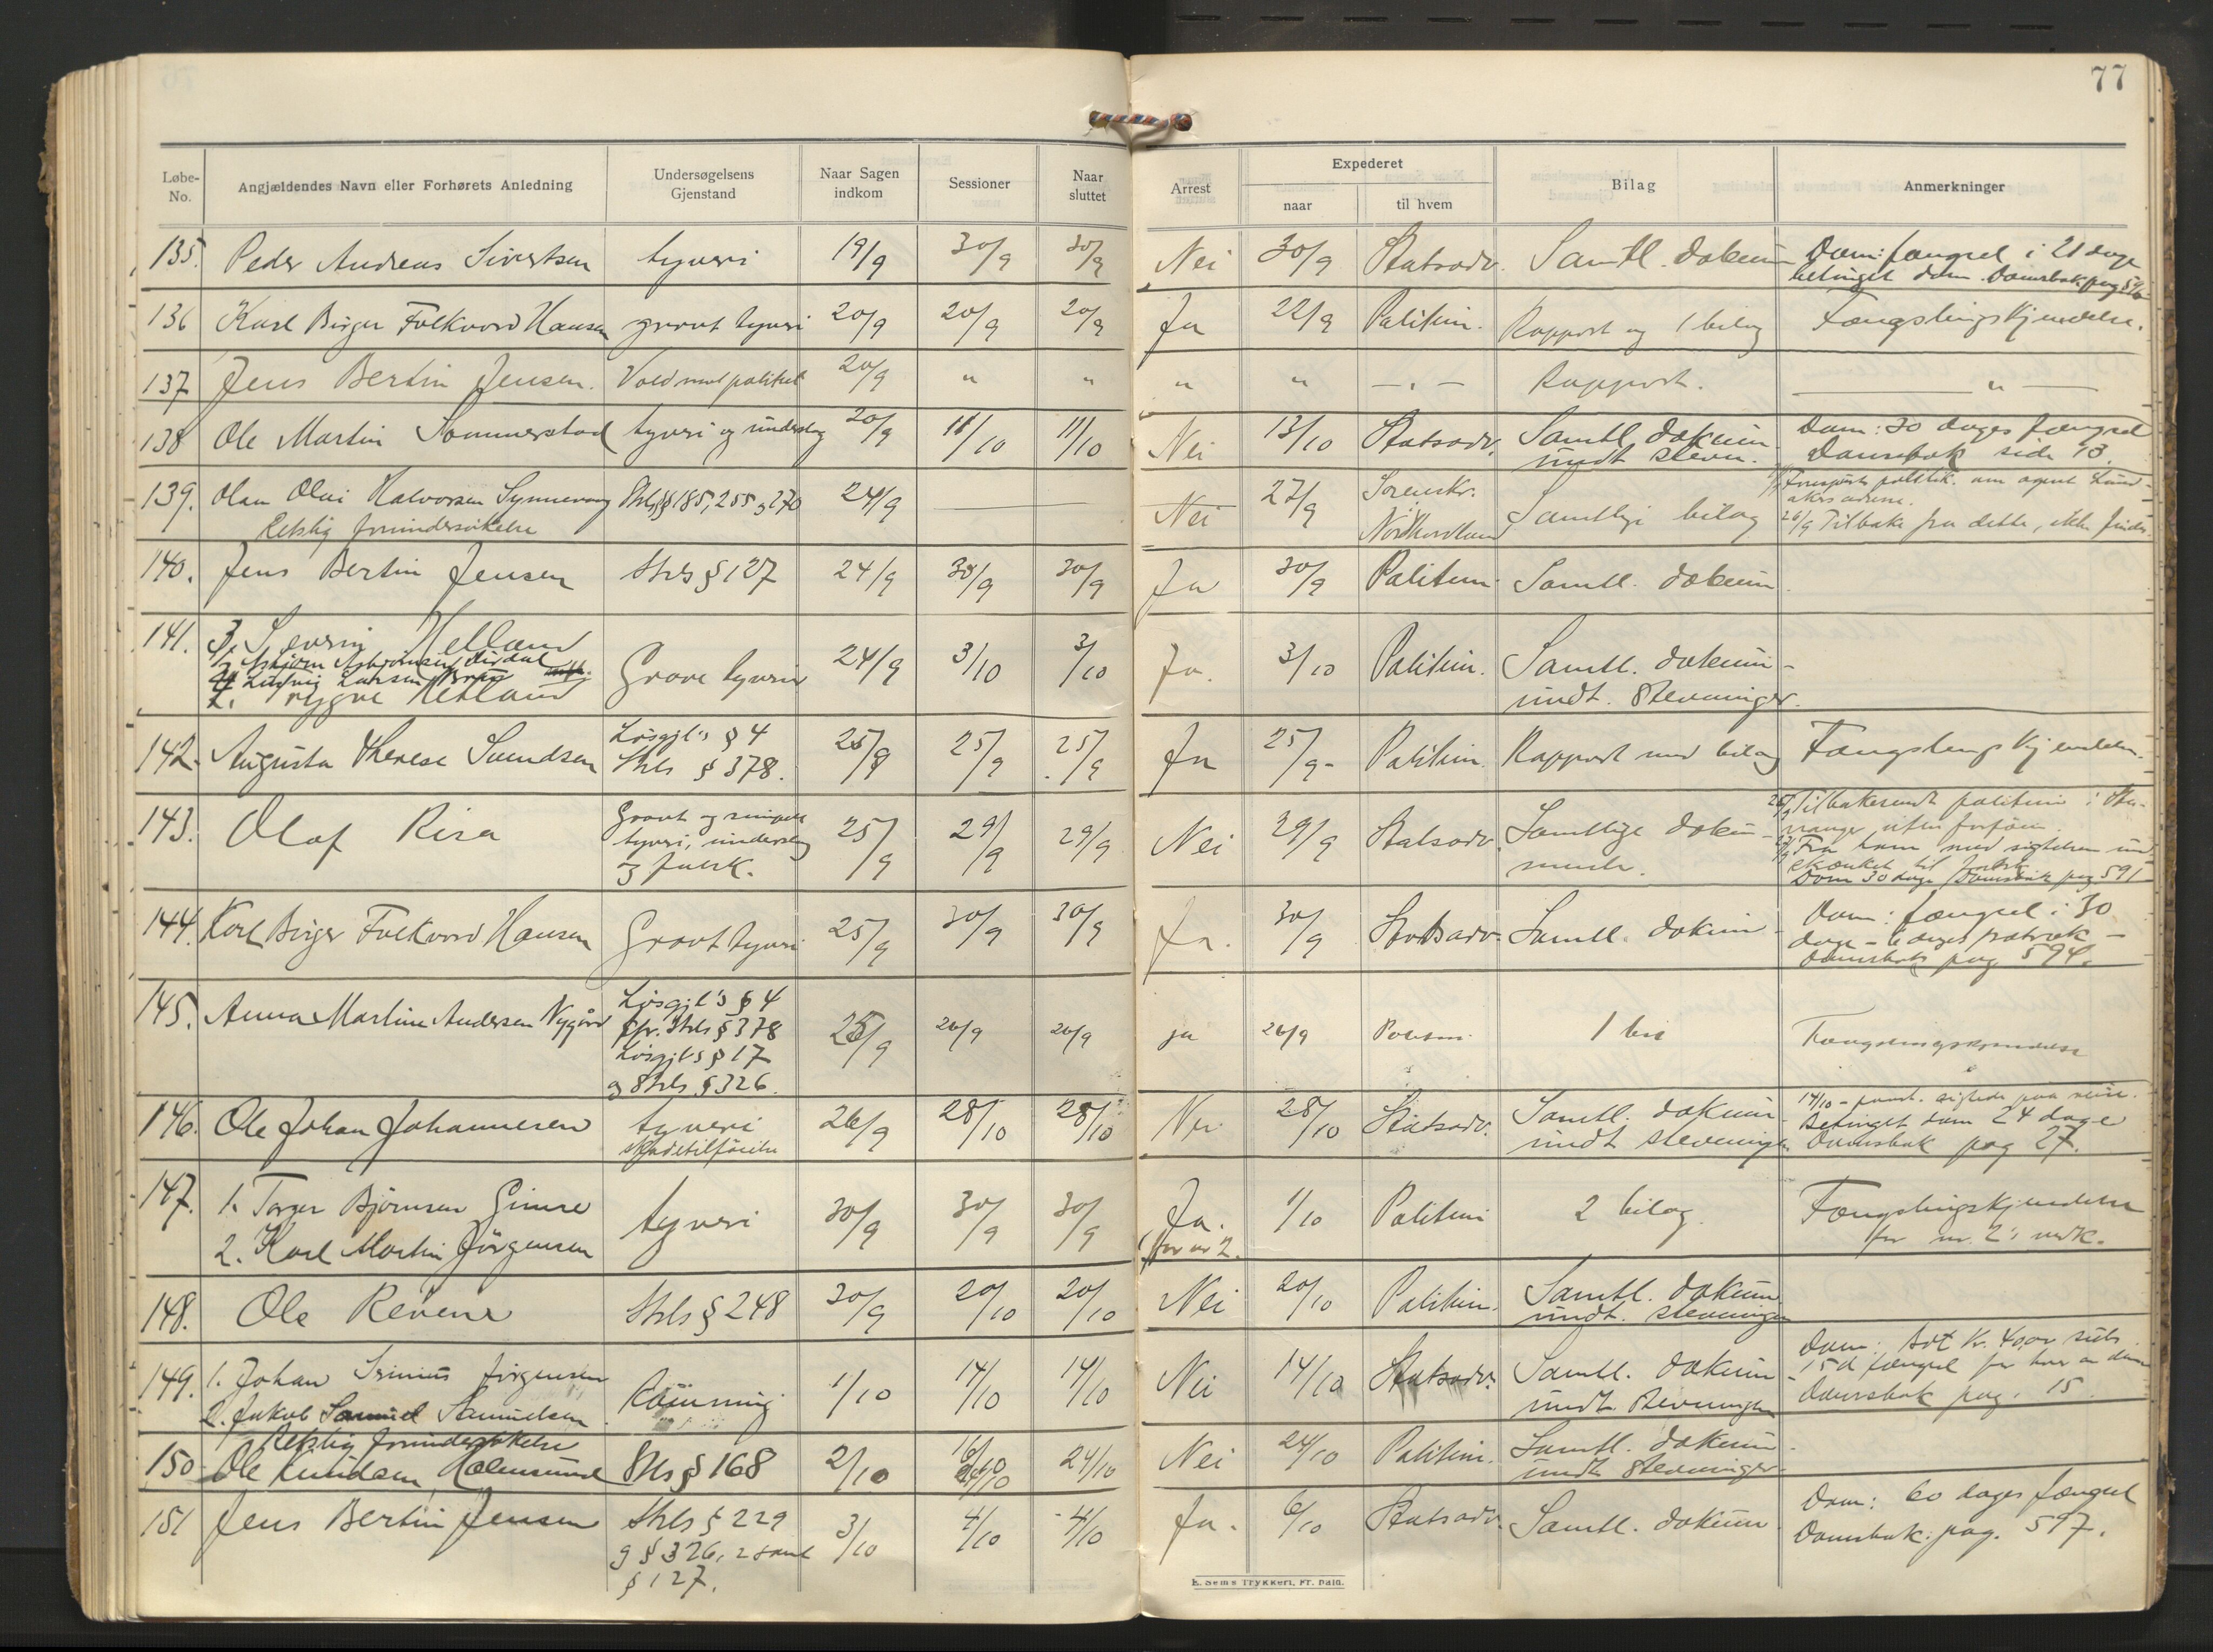 77
Løbe-No. Angjældendes Navn eller Forhørets Anledning Undersøgelsens Gjenstand Naar Sagen indkom Sessioner Naar sluttet Arrest Expederet naar til hvem Bilag Anmerkninger
135. Peder Andreas Sivertsen tyveri 19/9 30/9 30/9 Nei 30/9 Statsadv. Samtl. dokum Dom: fængsel i 21 dage
betinget dom. Domsbok pag
136 Karl Birger Folkvord Hansen grovt tyveri 20/9 20/9 20/9 Ja 22/9 Politim. Rapport og 1 bilag Fængslingskjendelse.
137 Jens Bertin Jensen. Vold mot politiet 20/9 " " " " — " — Rapport. — " —
138 Ole Martin Sommerstad tyveri og underslag 20/9 11/10 11/10 Nei 13/10 Statsadv. Samtl. dokum Dom: 30 dages fængsel
undt. stevn. Domsbok side 13.
139. Olav Halvorsen Strls §§ 185, 255 og 270 24/9 — — Nei 27/9 Sorenskr. i Nordhordland Samtlige bilag
Retslig forundersøkelse 26/9 Tilbake fra dette, ikke
140. Jens Bertin Jensen Strls § 127 24/9 30/9 30/9 Ja 30/9 Politim. Samtl. dokum
141. 3. Severin Helland Grove tyveri 24/9 3/10 3/10 Ja. 3/10 Politim. Samtl. dokum-
1. Asbjørn Asbjørnsen undt. Stevninger.
4. Ludvig Larsen
2. Trygve Helland
142. Augusta Therese Svendsen Løsgjl's § 4 25/9 25/9 25/9 Ja 25/9- Politim. Rapport med bilag Fængslingskjendelse.
Strls § 378.
143. Olaf Risa Grovt og simpelt 25/9 29/9 29/9 Nei 29/9 Statsadv. Samtlige doku- Tilbakesendt politim i Sta-
tyveri, underslag mente. vanger
og falsk. Fra ham med sigtelsen
Dom 30 dage Domsbok pag 591
144. Karl Birger Folkvord Hansen Grovt tyveri 25/9 30/9 30/9 Ja. 30/9 Statsadv. Samtl. dokum- Dom: fængsel i 30
dage - 6 dages fratræk -
Domsbok pag 594.
145. Anna Martine Andersen Nygård Løsgjl's § 4 25/9 26/9 26/9 ja 26/9 Politim. 1 bil Fængslingskjendelse
cfr. Strls § 378
Løsgjl's § 17
og Strls § 326.
146. Ole Johan Johannesen tyveri 26/9 28/10 28/10 Nei 28/10 Statsadv. Samtl. dokum- 14/10 -
skadetilføielse undt stevninger Betinget dom 24 dage
Domsbok pag 27.
147. 1. Torger Bjørnsen Gimre tyveri 30/9 30/9 30/9 Ja. 1/10 Politim 2 bilag. Fængslingskjendelse
2. Karl Martin Jørgensen for nr 2. for nr. 2's vedk.
148. Ole Revene Strls § 248 30/9 20/10 20/10 Nei 20/10 Politim. Samtl. dokum
undt. stevninger
149. 1. Johan Jørgensen Ransning 1/10 14/10 14/10 Nei 14/10 Statsadv. Samtl. dokum Dom: bøt Kr. 40,00 subs
2. Jakob Samuelsen undt. Stevninger 15 d fængsel for hver
Domsbok pag. 15
Retslig forundersøkelse
150 Ole Knudsen Holmesund Strls § 168 2/10 24/10 Nei 24/10 Politim. Samtl. dokum
undt. Stevninger
151 Jens Bertin Jensen Strls § 229 3/10 4/10 4/10 Ja. 6/10 Statsadv. Samtl. dokum Dom: 60 dages fængsel
og § 326, 2 samt Domsbok: pag. 597.
§ 127.
E. Sems Trykkeri, Fr. hald.